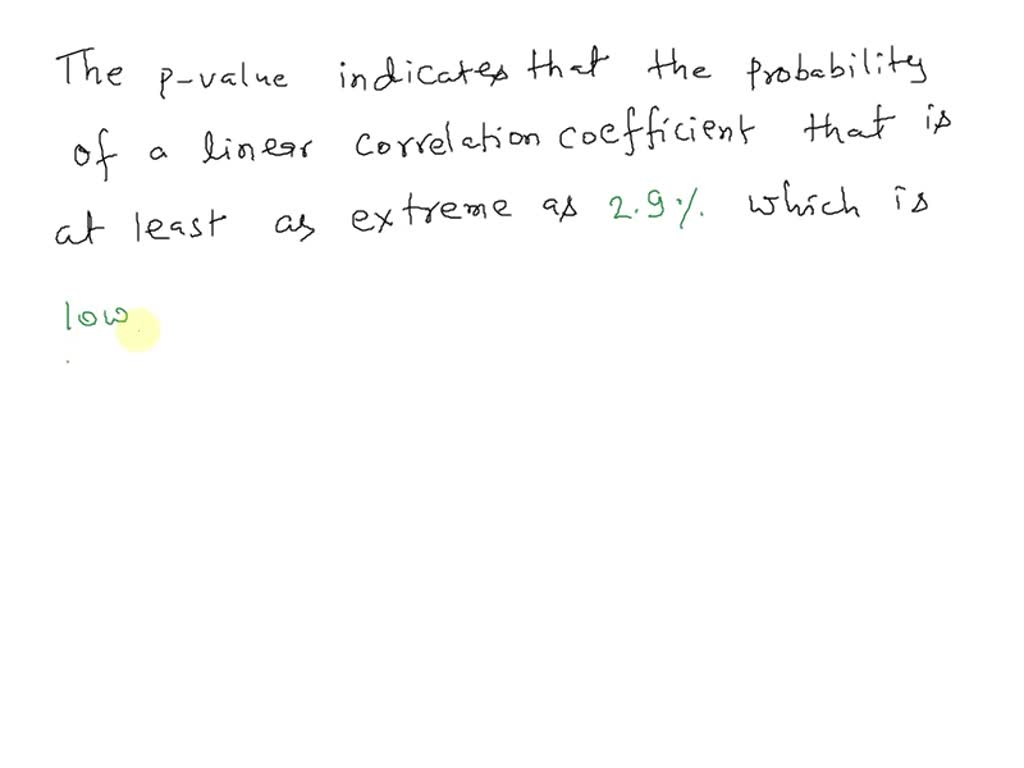 The p-value indicates that the probability
of a linear correlation coefficient that is
at least as extreme as 2.9% which is
low